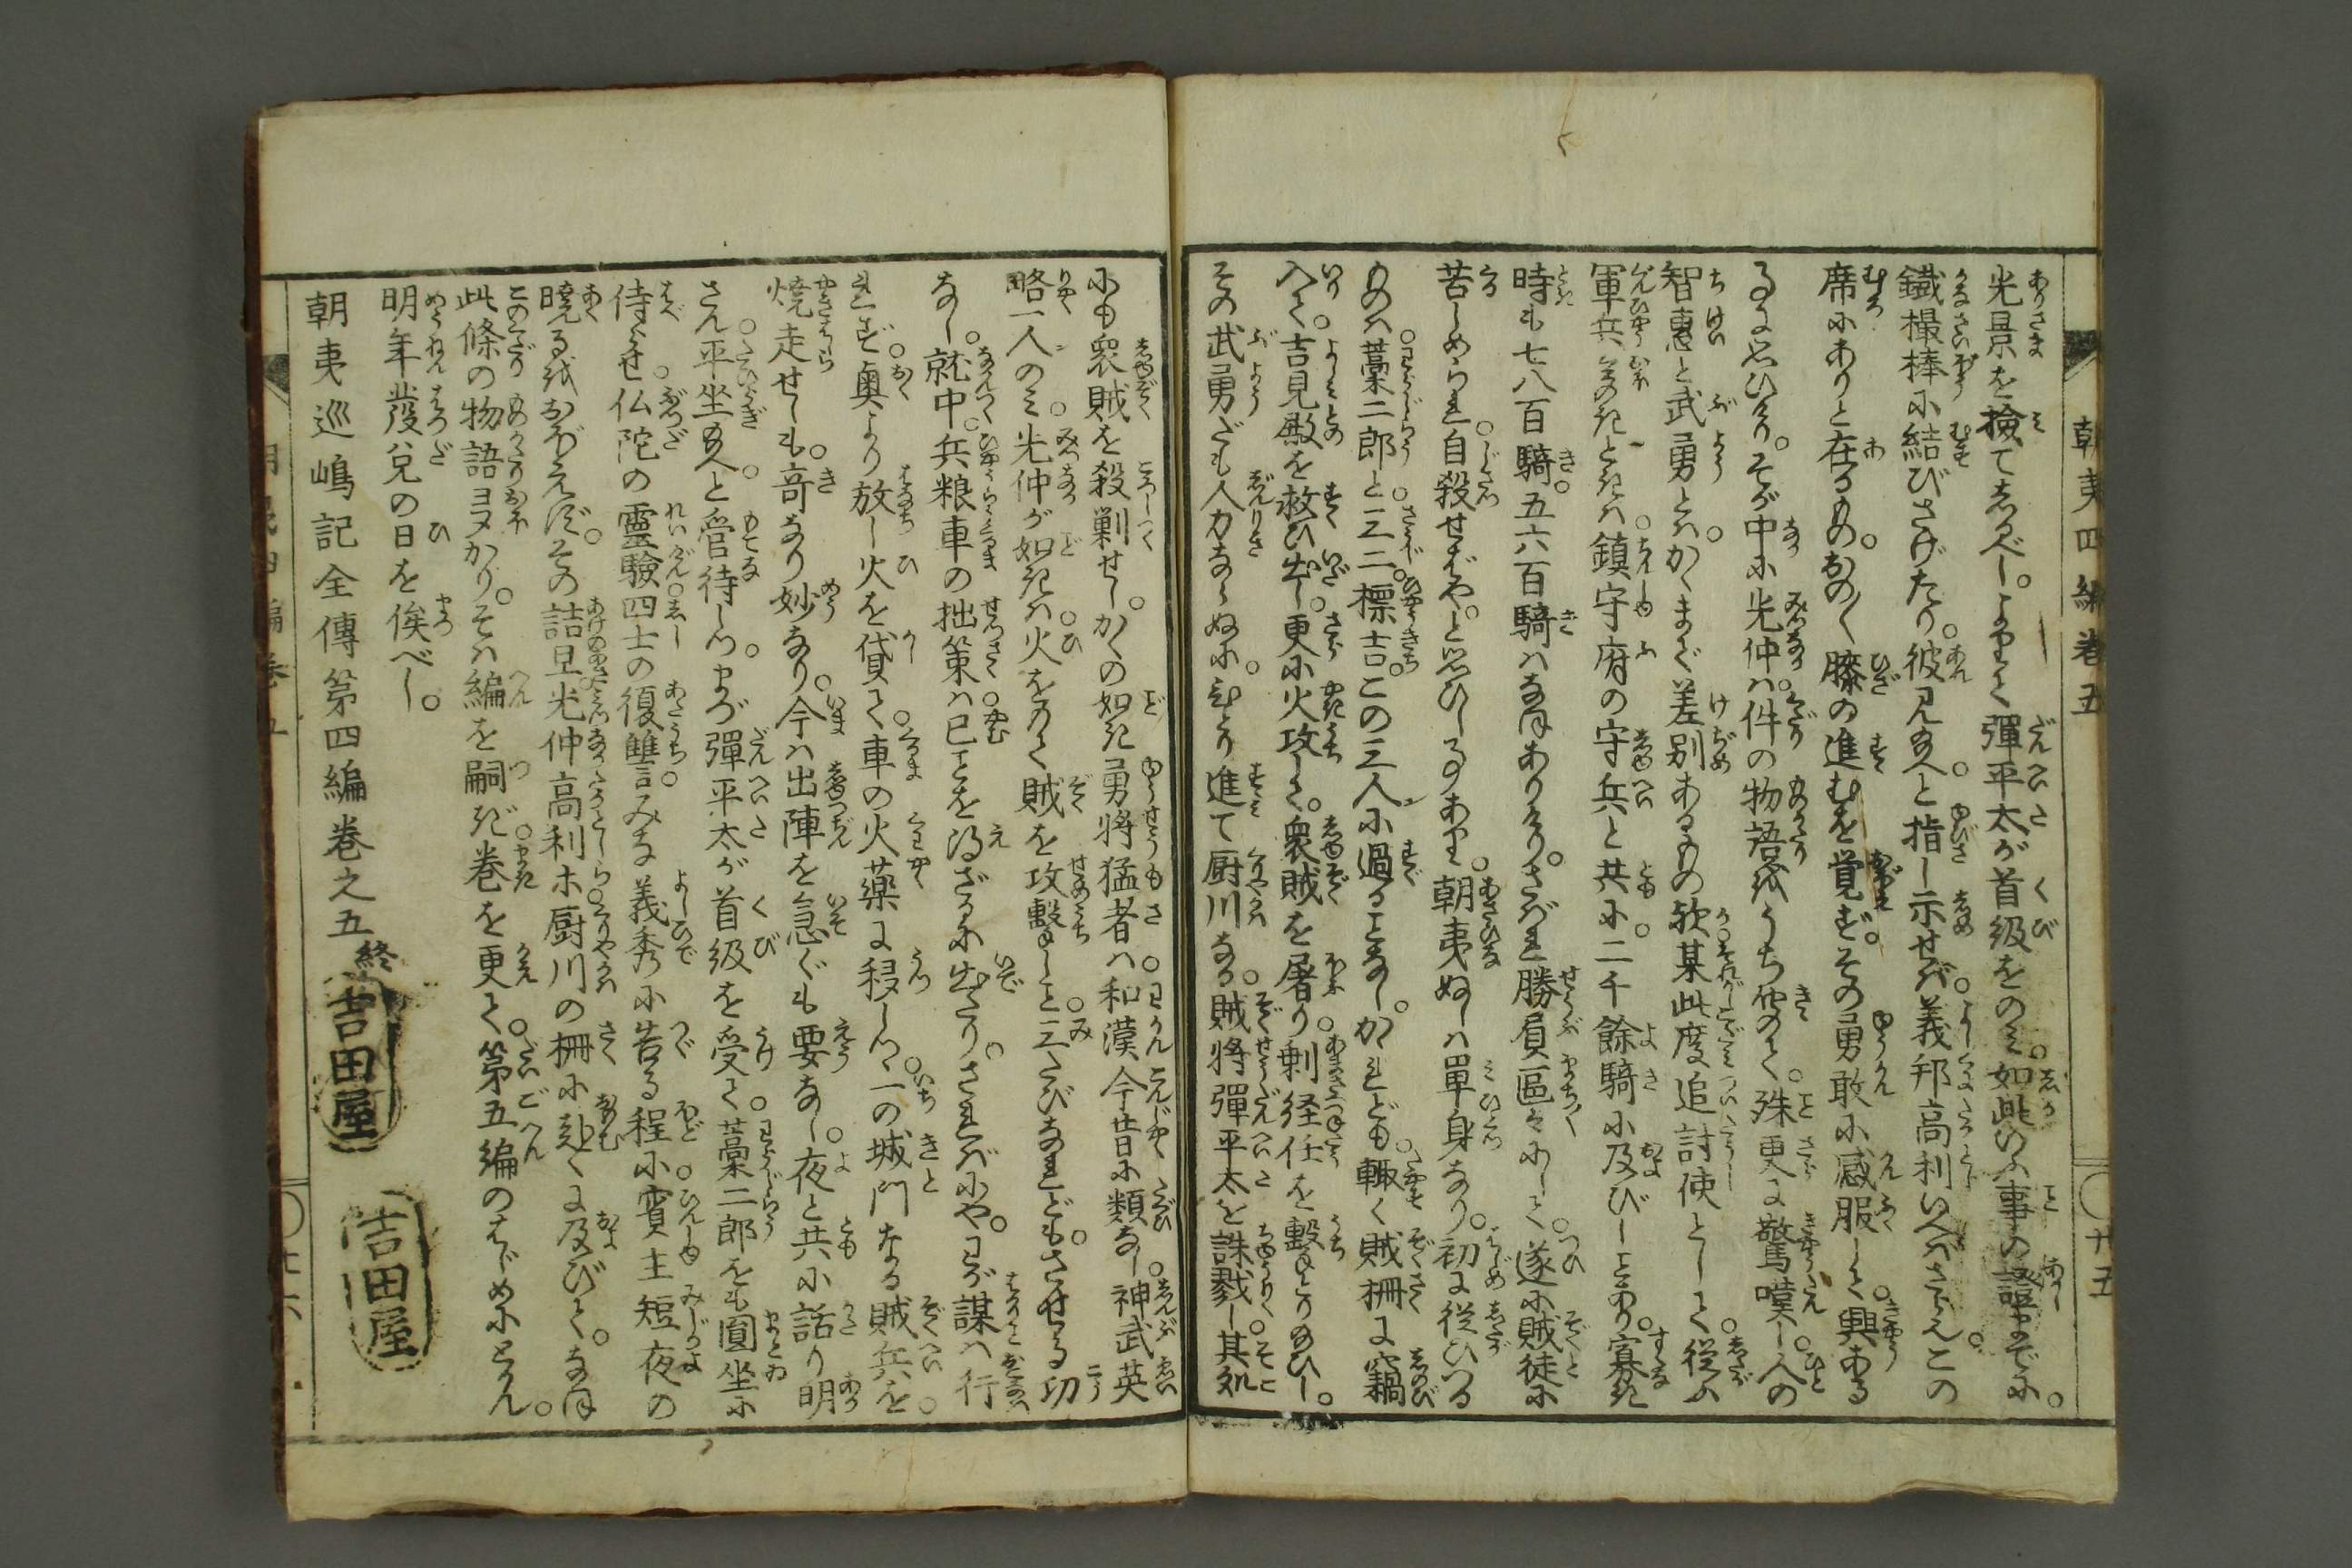 朝夷四編巻五
〇廿五
光景を撿てしるべし。よりて彈平太が首級をのみ。如此いふ事の證までに。
鐵撮棒に結びさげたり。彼見給へと指し示せば。義邦高利いへばさらん。この
席にありと在るもの。おの〳〵膝の進むを覚ず。その勇敢に感服して。興ある
ことに思ひけり。そが中に光仲は。件の物語をうち聞て。殊更に驚嘆し。人の
智恵と武勇とは。かくまで差別あるもの歟。某此度追討使として。從ふ
軍兵多のきときは。鎮守府の守兵と共に。二千餘騎に及びしとあり。寡き
時も七八百騎。五六百騎はなほありけり。されば勝負區々にして。遂に賊徒に
苦しめられ。自殺せばや。と思ひしことあり。朝夷ぬしは單身なり。初に従ひつる
ものは藁二郎と。三二標吉。この三人に過ることなし。かれども。輙く賊柵に竊
入て。吉見殿を救ひ出し。更に火攻して。衆賊を屠り。剰経任を擊とり給ひし。
その武勇だも人力ならぬに。ひとり進て厨川なる。賊將彈平太を誅戮し。其処
にも衆賊を殺剿せし。かくの如き勇将猛者は。和漢今昔に類なし。神武英
略一人のみ。光仲が如きは。火をもて賊を攻擊こと。三たびなれども。させる功
なし。就中。兵粮車の拙策は。已ことを得ざるに出たり。さればにや。わが謀は行
れず。奥より放し火を貸て。車の火薬に移しつ。一の城門なる賊兵を。
焼走せしも。竒なり妙なり。今は出陣を急ぐも要なし。夜と共に話り明
さん。平坐給へと管待しつ。まづ彈平太が首級を受て。藁二郎をも圓坐に
侍らせ。仏陀の靈驗四士の復讐。みな義秀に告る程に。賓主短夜の
暁るをおぼえず。その詰旦光仲高利ホ。厨川の柵に赴くに及びて。なほ
此條の物語ヨヌかり。そは編を嗣ぎ。巻を更て。第五編のはじめにとかん。
明年發兌の日を俟べし。
朝夷巡嶋記全傳第四編巻之五終
吉田屋
吉田屋